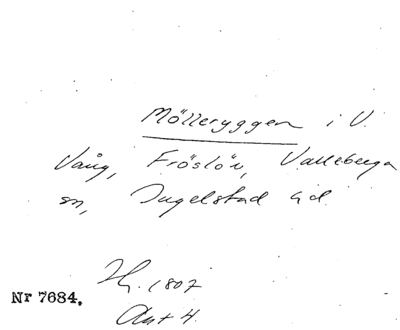 Mölleryggen i V.
Vång, Fröslöv, Valleberga
sn, Ingelstad hd.
H. 1807
Akt 4.
Nr 7684.